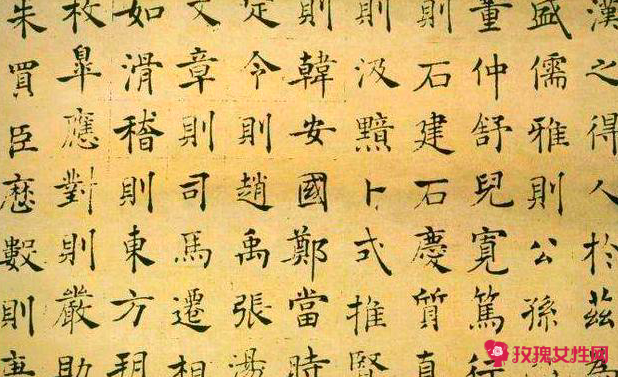 漢之得人於茲為
盛儒雅則公孫
董仲舒兒寬篤行
則石建石慶質直
則汲黯卜式推賢
則韓安國鄭當時
定令則趙禹張湯
文章則司馬遷相
如滑稽則東方朔
枚皐應對則嚴助
朱買臣歷數則唐
玫瑰女性网